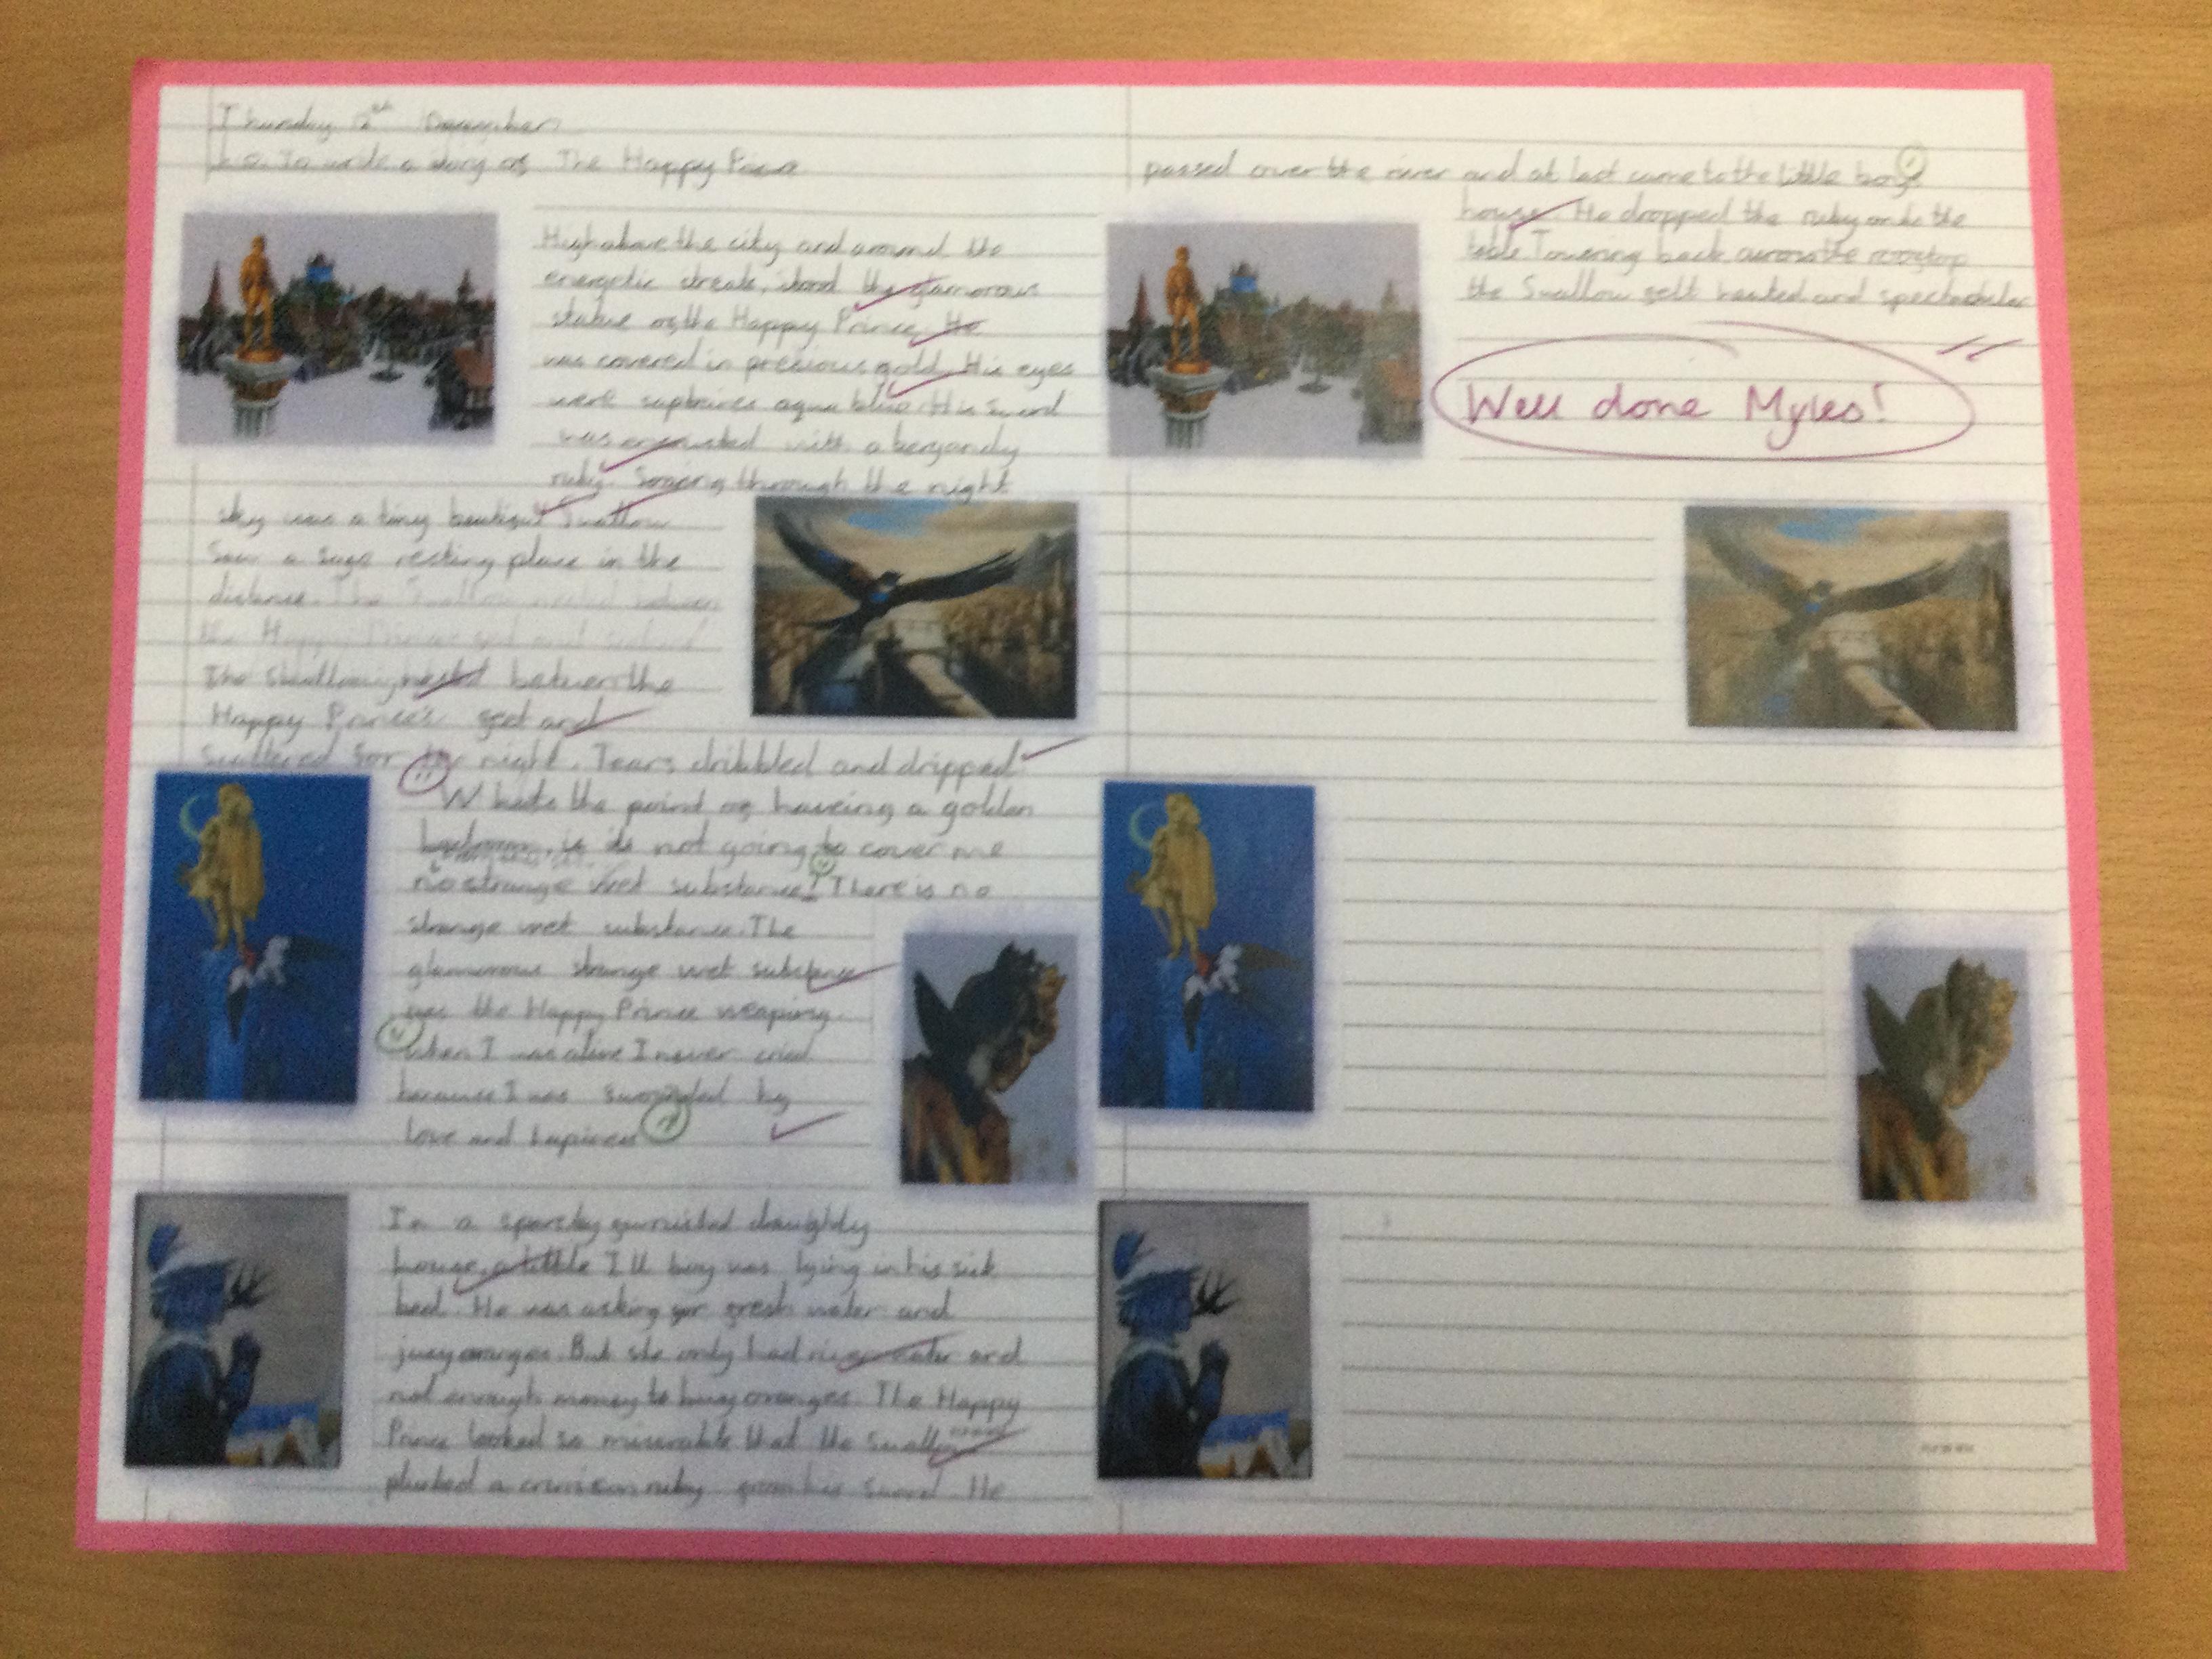 Thursday December
L.O. To write a story of The Happy Prince
High above the city and around the
energetic streats, stood the glamorous
statue of the Happy Prince. He
was covered in precious gold. His eyes
were saphaires aqua blue. His sword
was encrusted with a bergandy
ruby. Soaring through the night
sky was a tiny beutiful Swallow
Saw a safe resting place in the
distance. The Swallow nested between
the Happy Prince's feet and
The Swallow nested between the
Happy Prince's feet and
for the night. Tears dribbled and dripped
Whats the point of haveing a golden
bedroom, if its not going to cover me
strange wet substance! There is no
strange wet substance. The
glamorous strange wet substance
was the Happy Prince weaping.
when I was alive I never cried
because I was by
love and hapiness
In a draughty
house, a little Ill boy was lying in his sick
bed. He was asking for fresh water and
juicy oranges. But she only had river water and
not enough money to buy oranges. The Happy
Prince looked so miserable that the Swallow
plucked a crimson ruby from his sword. He
passed over the river and at last came to the little boys
house. He dropped the ruby onto the
table. Towering back across the rooftop
the Swallow felt heated and spectacular
Well done Myles!